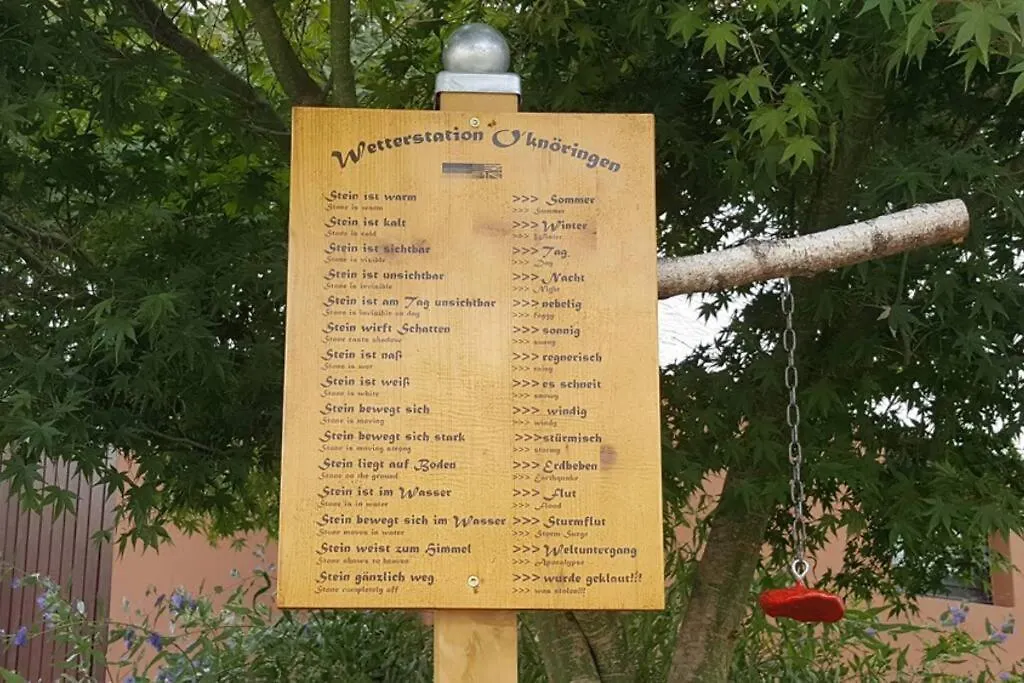 Wetterstation O'knöringen
Stein ist warm >>> Sommer
Stone is warm >>> Summer
Stein ist kalt >>> Winter
Stone is cold >>> Winter
Stein ist sichtbar >>> Tag
Stone is visible >>> Day
Stein ist unsichtbar >>> Nacht
Stone is invisible >>> Night
Stein ist am Tag unsichtbar >>> nebelig
Stone is invisible on day >>> foggy
Stein wirft Schatten >>> sonnig
Stone casts shadow >>> sunny
Stein ist naß >>> regnerisch
Stone is wet >>> rainy
Stein ist weiß >>> es schneit
Stone is white >>> snowy
Stein bewegt sich >>> windig
Stone is moving >>> windy
Stein bewegt sich stark >>>stürmisch
Stone is moving strong >>> stormy
Stein liegt auf Boden >>> Erdbeben
Stone on the ground >>> Earthquake
Stein ist im Wasser >>> Flut
Stone is in water >>> Flood
Stein bewegt sich im Wasser >>> Sturmflut
Stone moves in water >>> Storm Surge
Stein weist zum Himmel >>> Weltuntergang
Stone shows to heaven >>> Apocalypse
Stein gänzlich weg >>> wurde geklaut!!!
Stone completely off >>> was stolen!!!